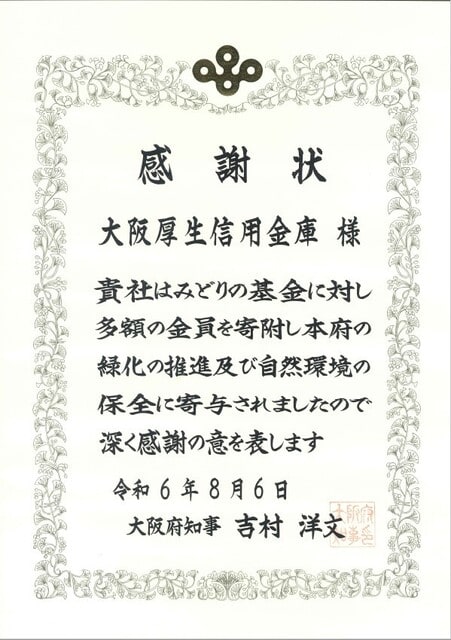 感謝状
大阪厚生信用金庫 様
貴社はみどりの基金に対し
多額の金員を寄附し本府の
緑化の推進及び自然環境の
保全に寄与されましたので
深く感謝の意を表します
令和6年8月6日
大阪府知事 吉村 洋文